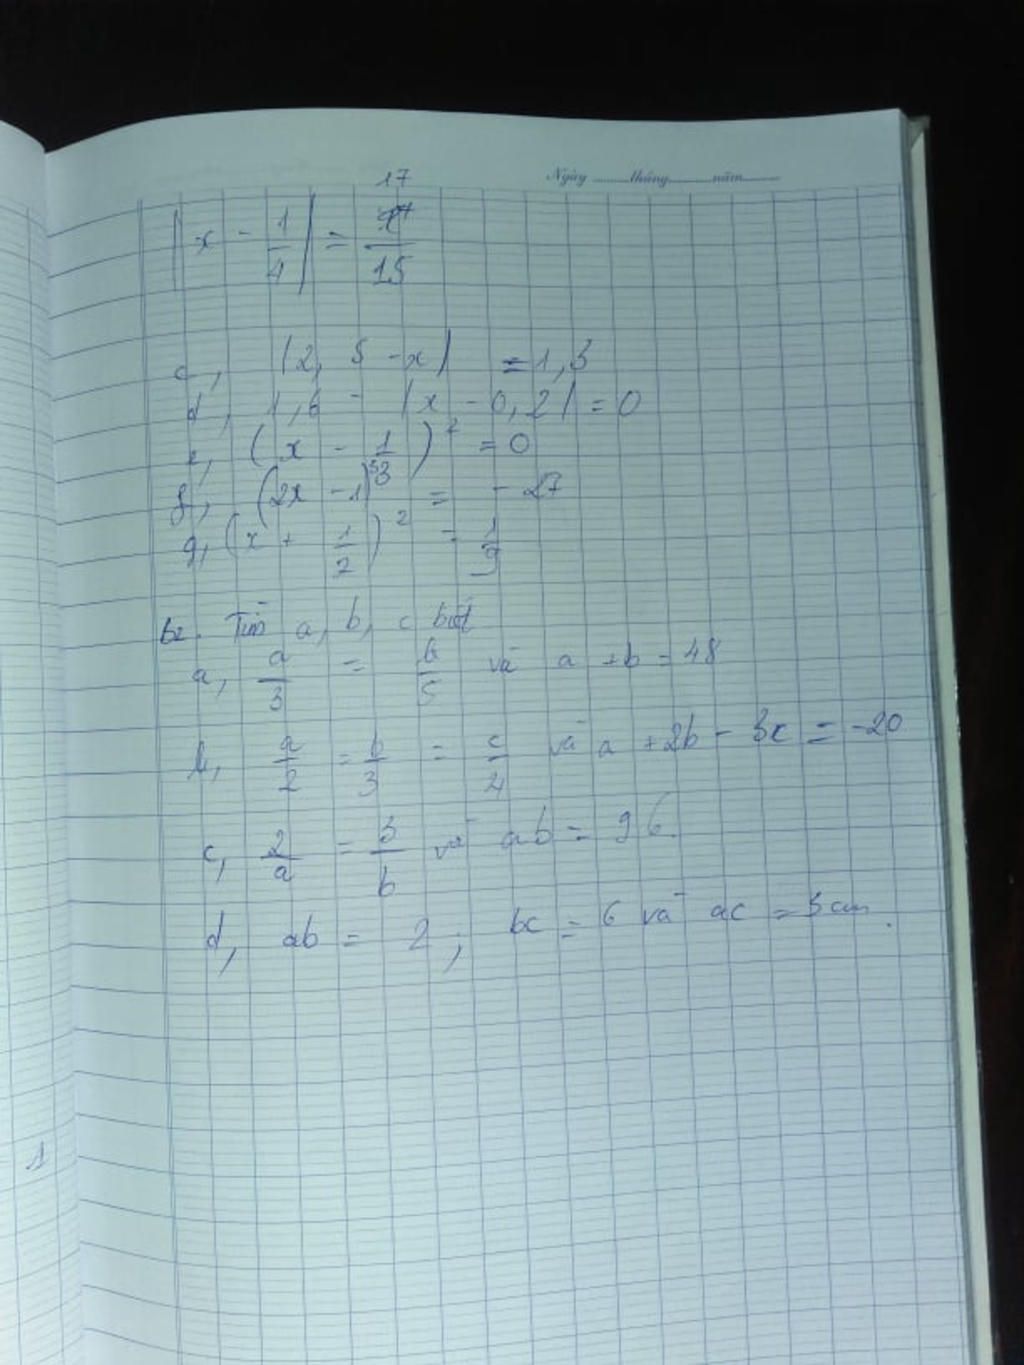 Ngày ........tháng........năm........
17
|x - 1/4| = 17/15
c, |2,5 - x| = 1,3
d, 1,6 - |x - 0,2| = 0
e, (x - 1/3)² = 0
f, (2x - 1)³ = - 27
g, (x + 1/2)² = 1/9
b2. Tìm a, b, c biết
a, a/3 = b/5 và a + b = 48
b, a/2 = b/3 = c/4 và a + 2b - 3c = -20
c, 2/a = 3/b và ab = 96.
d, ab = 2 ; bc = 6 và ac = 3
1